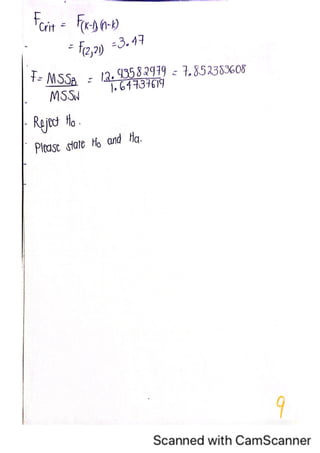 Fcrit = F(K-1)(n-k)
= F(2,21) = 3.47
F = MSSB / MSSW = 12.93582979 / 1.64737619 = 7.852383608
Reject Ho.
Please state Ho and Ha.
9
Scanned with CamScanner